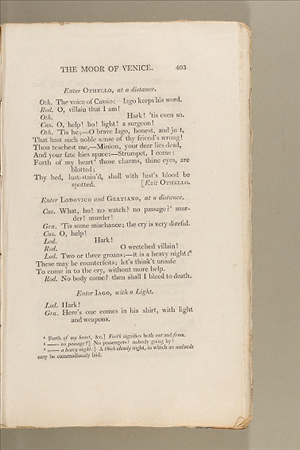 THE MOOR OF VENICE. 403
Enter OTHELLO, at a distance.
Oth. The voice of Cassio: Iago keeps his word.
Rod. O, villain that I am!
Oth. Hark! 'tis even so.
Cas. O, help! ho! light! a surgeon!
Oth. 'Tis he;—O brave Iago, honest, and just,
That hast such noble sense of thy friend's wrong!
Thou teachest me,—Minion, your dear lies dead,
And your fate hies apace:—Strumpet, I come:
Forth of my heart those charms, thine eyes, are
blotted;
Thy bed, lust-stain'd, shall with lust's blood be
spotted. [Exit OTHELLO.
Enter LODOVICO and GRATIANO, at a distance.
Cas. What, ho! no watch? no passage? mur-
der! murder!
Gra. 'Tis some mischance; the cry is very direful.
Cas. O, help!
Lod. Hark!
Rod. O wretched villain!
Lod. Two or three groans;—it is a heavy night:
These may be counterfeits; let's think't unsafe
To come in to the cry, without more help.
Rod. No body come? then shall I bleed to death.
Enter IAGO, with a Light.
Lod. Hark!
Gra. Here's one comes in his shirt, with light
and weapons.
Forth of my heart, &c.] Forth signifies both out and from.
—— no passage?] No passengers? nobody going by?
—— a heavy night:] A thick cloudy night, in which an ambush
may be commodiously laid.